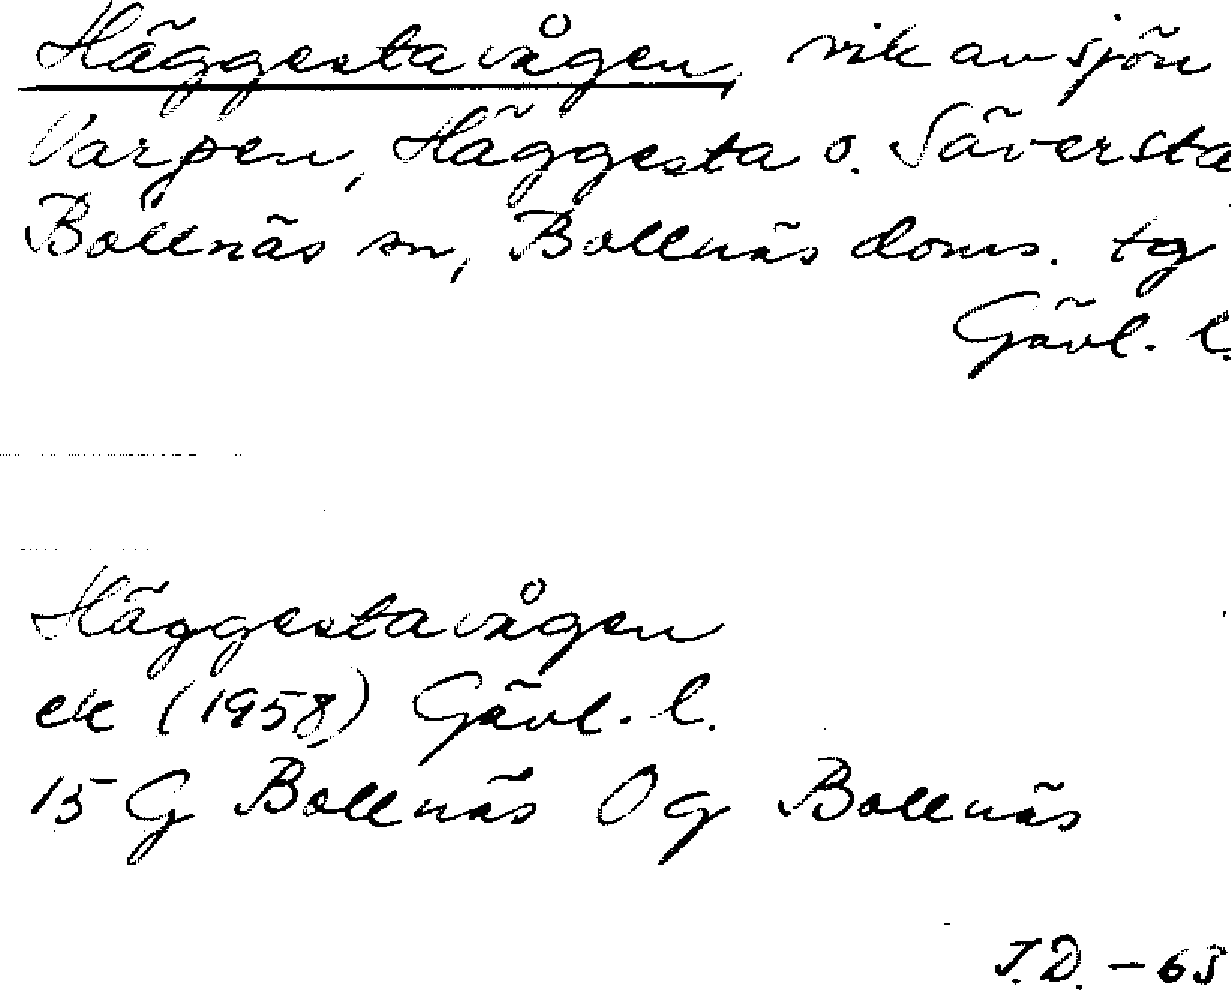 Häggestavågen, vik av sjön
Varpen, Häggesta o. Säversta
Bollnäs sn, Bollnäs doms. tg
Gävl. l.
Häggestavågen
ek (1958) Gävl. l.
15 G Bollnäs Og Bollnäs
J.D. - 65